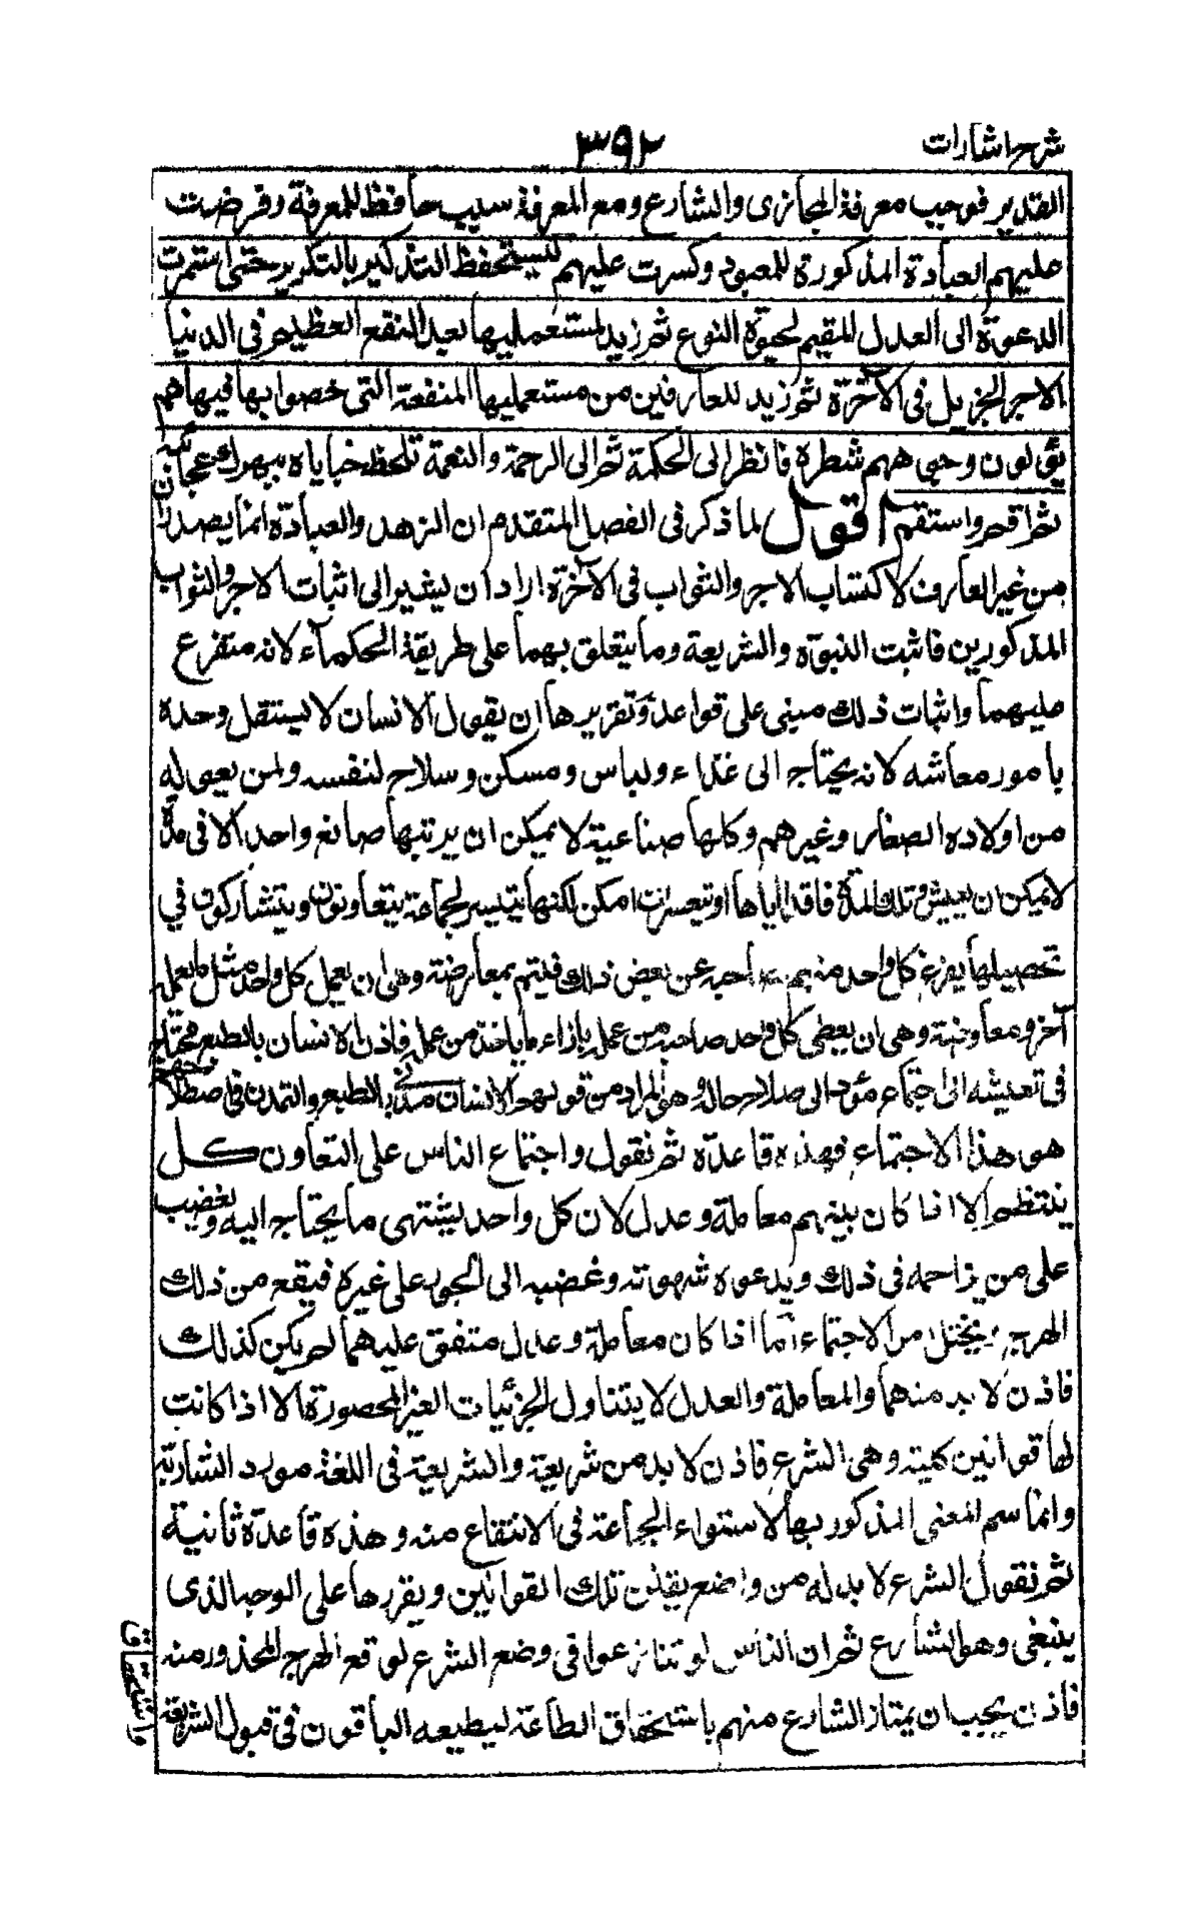 شرح اشارات ٣٩٢
القدير فوجب معرفة المجازى والشارع ومع المعرفة سبب حافظ للمعرفة وفرضت
عليهم العبادة المذكورة للمعبود وكررت عليهم ليستحفظ التذكير بالتكرير حتى استمرت
الدعوة الى العدل المقيم لحيوة النوع ثم زيد لمستعمليها بعد النفع العظيم فى الدنيا
الاجر الجزيل فى الآخرة ثم زيد للعارفين من مستعمليها المنفعة التى خصوا بها فيما هم
مولون وجوههم شطره فانظر الى الحكمة ثم الى الرحمة والنعمة تلحظ جنابا تبهرك عجائبه
ثم اقم واستقم اقول لما ذكر فى الفصل المتقدم ان الزهد والعبادة انما يصدران
من غير العارف لاكتساب الاجر والثواب فى الآخرة اراد ان يشير الى اثبات الاجر والثواب
المذكورين فاثبت النبوة والشريعة وما يتعلق بهما على طريقة الحكماء لانه متفرع
عليهما واثبات ذلك مبنى على قواعد وتقريرها ان يقول الانسان لا يستقل وحده
بامور معاشه لانه يحتاج الى غذاء ولباس ومسكن وسلاح لنفسه ولمن يعوله
من اولاده الصغار وغيرهم وكلها صناعية لا يمكن ان يرتبها صانع واحد الا فى مدة
لا يمكن ان يعيش تلك المدة فاقدا اياها او يتعسر ان امكن لكنها يتيسر لجماعة يتعاونون ويتشاركون فى
تحصيلها يفرغ كل واحد منهم صاحبه عن بعض ذلك فيتم بمعارضة وهى ان يعمل كل واحد مثل ما يعمله
آخر ومعاوضة وهى ان يعطى كل واحد صاحبه من عمله بازاء ما ياخذ من عمله فاذن الانسان بالطبع محتاج
فى تعيشه الى اجتماع مؤد الى صلاح حاله وهو المراد من قولهم الانسان مدنى بالطبع والتمدن فى اصطلاحهم
هو هذا الاجتماع فهذه قاعدة ثم نقول واجتماع الناس على التعاون كل
ينتظم الا اذا كان بينهم معاملة وعدل لان كل واحد يشتهى ما يحتاج اليه ويغضب
على من يزاحمه فى ذلك ويدعوه شهوته وغضبه الى الجور على غيره فيقع من ذلك
الهرج ويختل امر الاجتماع اما اذا كان معاملة وعدل متفق عليهما لم يكن كذلك
فاذن لا بد منهما والمعاملة والعدل لا يتناول الجزئيات الغير المحصورة الا اذا كانت
لها قوانين كلية وهى الشرع فاذن لا بد من شريعة والشريعة فى اللغة مورد الشاربة
وانما سم المعنى المذكور بها لاستواء الجماعة فى الانتفاع منه وهذه قاعدة ثانية
ثم نقول الشرع لا بد له من واضع يقنن تلك القوانين ويقررها على الوجه الذى
ينبغى وهو الشارع ثم ان الناس لو تنازعوا فى وضع الشرع لوقع الهرج المحذور منه
فاذن يجب ان يمتاز الشارع منهم باستحقاق الطاعة ليطيعه الباقون فى قبول الشريعة